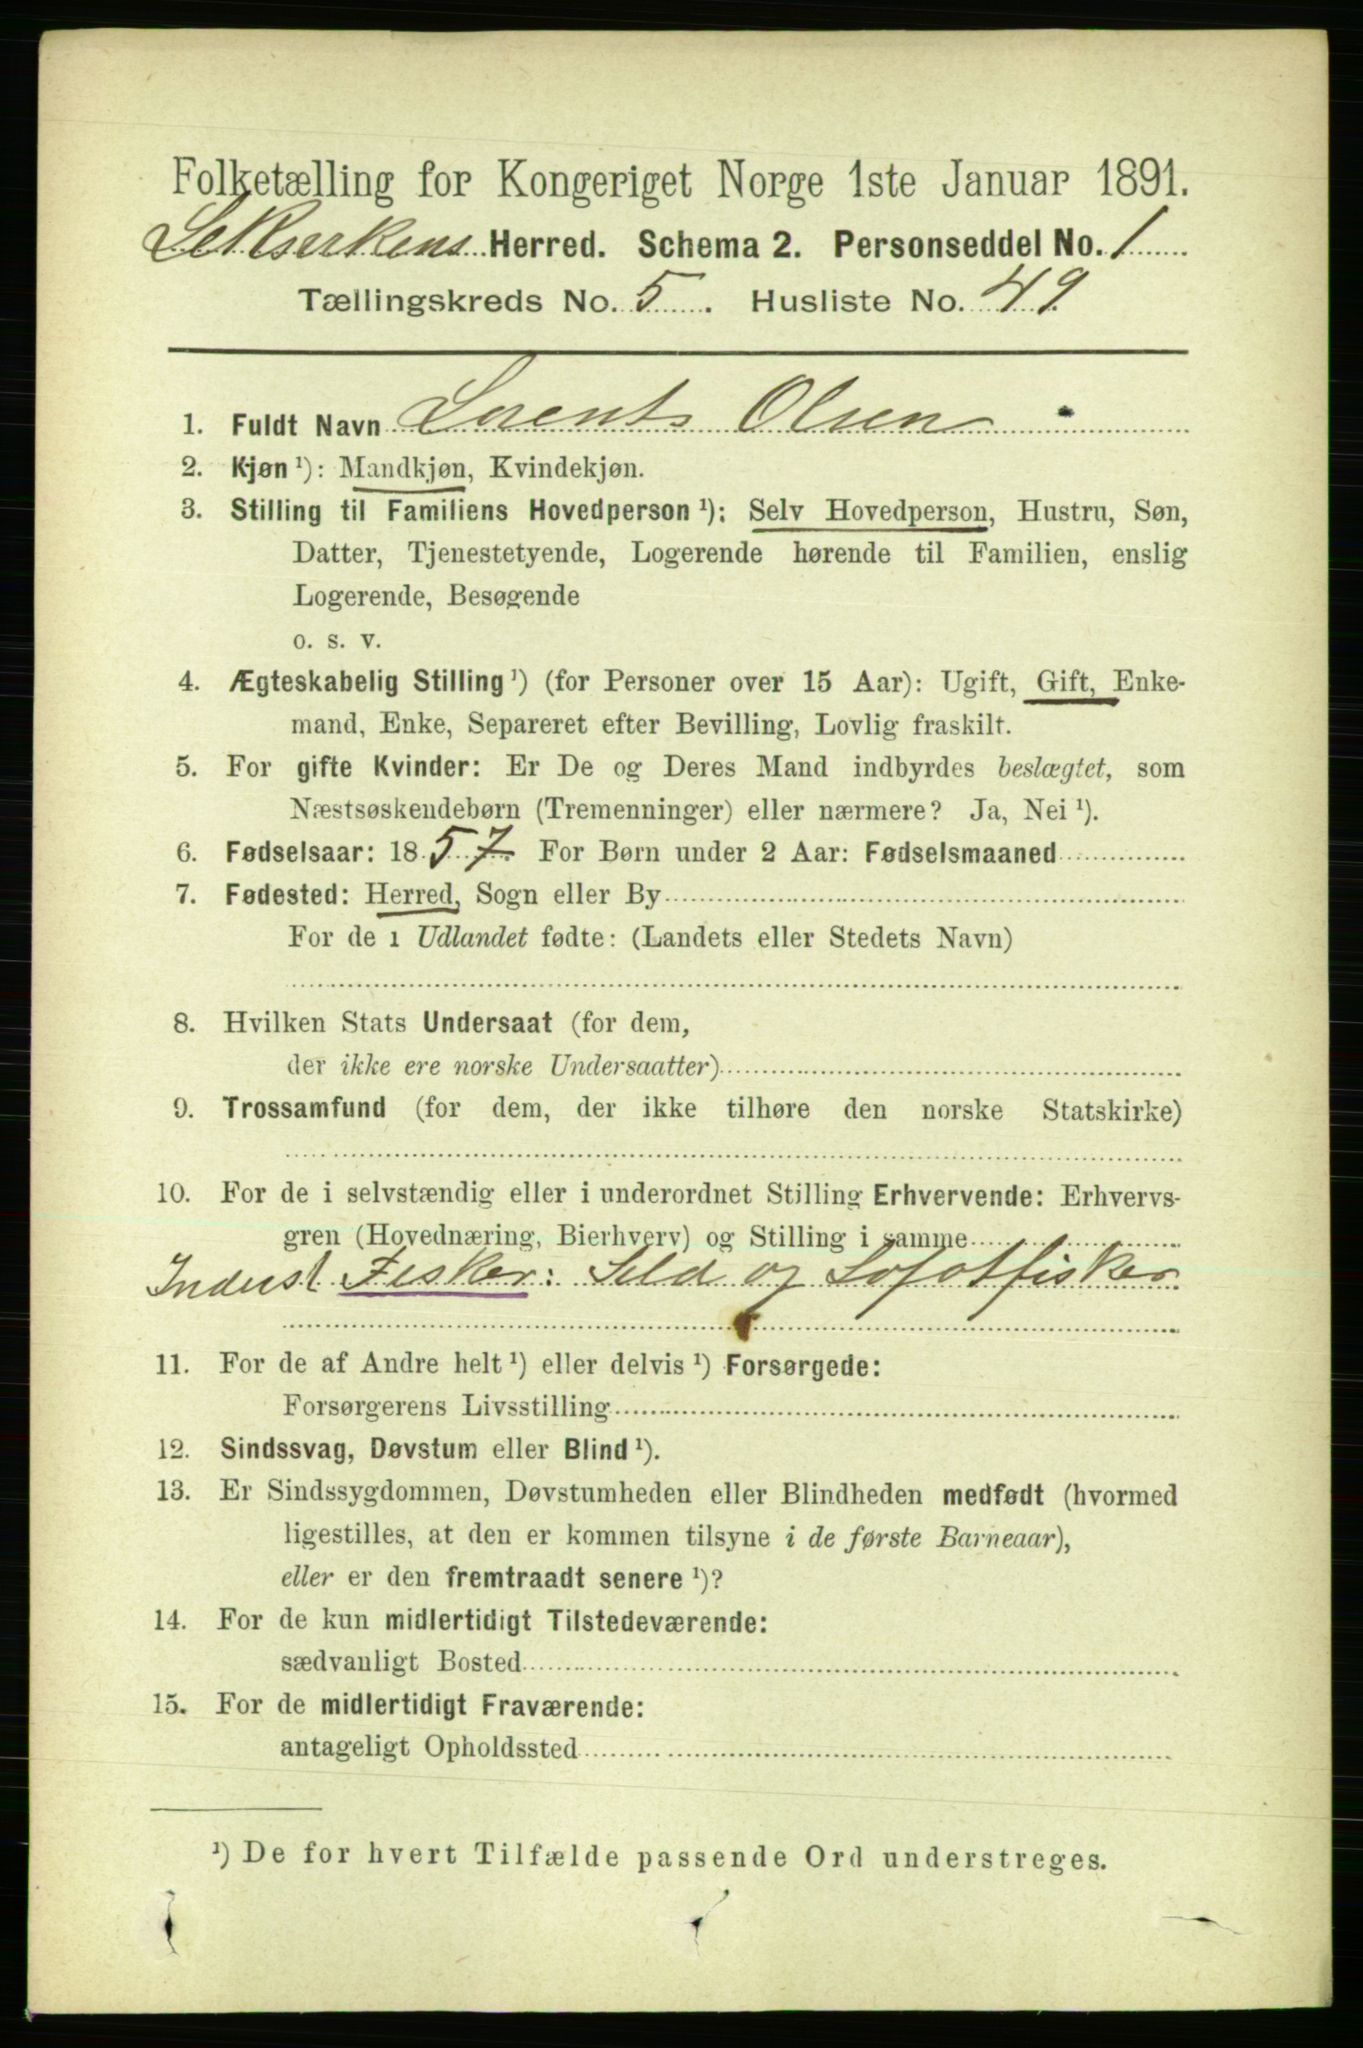 Folketælling for Kongeriget Norge 1ste Januar 1891.
Herred. Schema 2. Personseddel No. 1
Tællingskreds No. 5. Husliste No. 49
1. Fuldt Navn Lorents Olsen
2. Kjøn ¹): Mandkjøn, Kvindekjøn.
3. Stilling til Familiens Hovedperson ¹): Selv Hovedperson, Hustru, Søn,
Datter, Tjenestetyende, Logerende hørende til Familien, enslig
Logerende, Besøgende
o. s. v.
4. Ægteskabelig Stilling ¹) (for Personer over 15 Aar): Ugift, Gift, Enke-
mand, Enke, Separeret efter Bevilling, Lovlig fraskilt.
5. For gifte Kvinder: Er De og Deres Mand indbyrdes beslægtet, som
Næstsøskendebørn (Tremenninger) eller nærmere? Ja, Nei ¹).
6. Fødselsaar: 1857 For Børn under 2 Aar: Fødselsmaaned
7. Fødested: Herred, Sogn eller By
For de i Udlandet fødte: (Landets eller Stedets Navn)
8. Hvilken Stats Undersaat (for dem,
der ikke ere norske Undersaatter)
9. Trossamfund (for dem, der ikke tilhøre den norske Statskirke)
10. For de i selvstændig eller i underordnet Stilling Erhvervende: Erhvervs-
gren (Hovednæring, Bierhverv) og Stilling i samme
Inderst Fisker: Sild og Lofotfisker
11. For de af Andre helt ¹) eller delvis ¹) Forsørgede:
Forsørgerens Livsstilling
12. Sindssvag, Døvstum eller Blind ¹).
13. Er Sindssygdommen, Døvstumheden eller Blindheden medfødt (hvormed
ligestilles, at den er kommen tilsyne i de første Barneaar),
eller er den fremtraadt senere ¹)?
14. For de kun midlertidigt Tilstedeværende:
sædvanligt Bosted
15. For de midlertidigt Fraværende:
antageligt Opholdssted
¹) De for hvert Tilfælde passende Ord understreges.